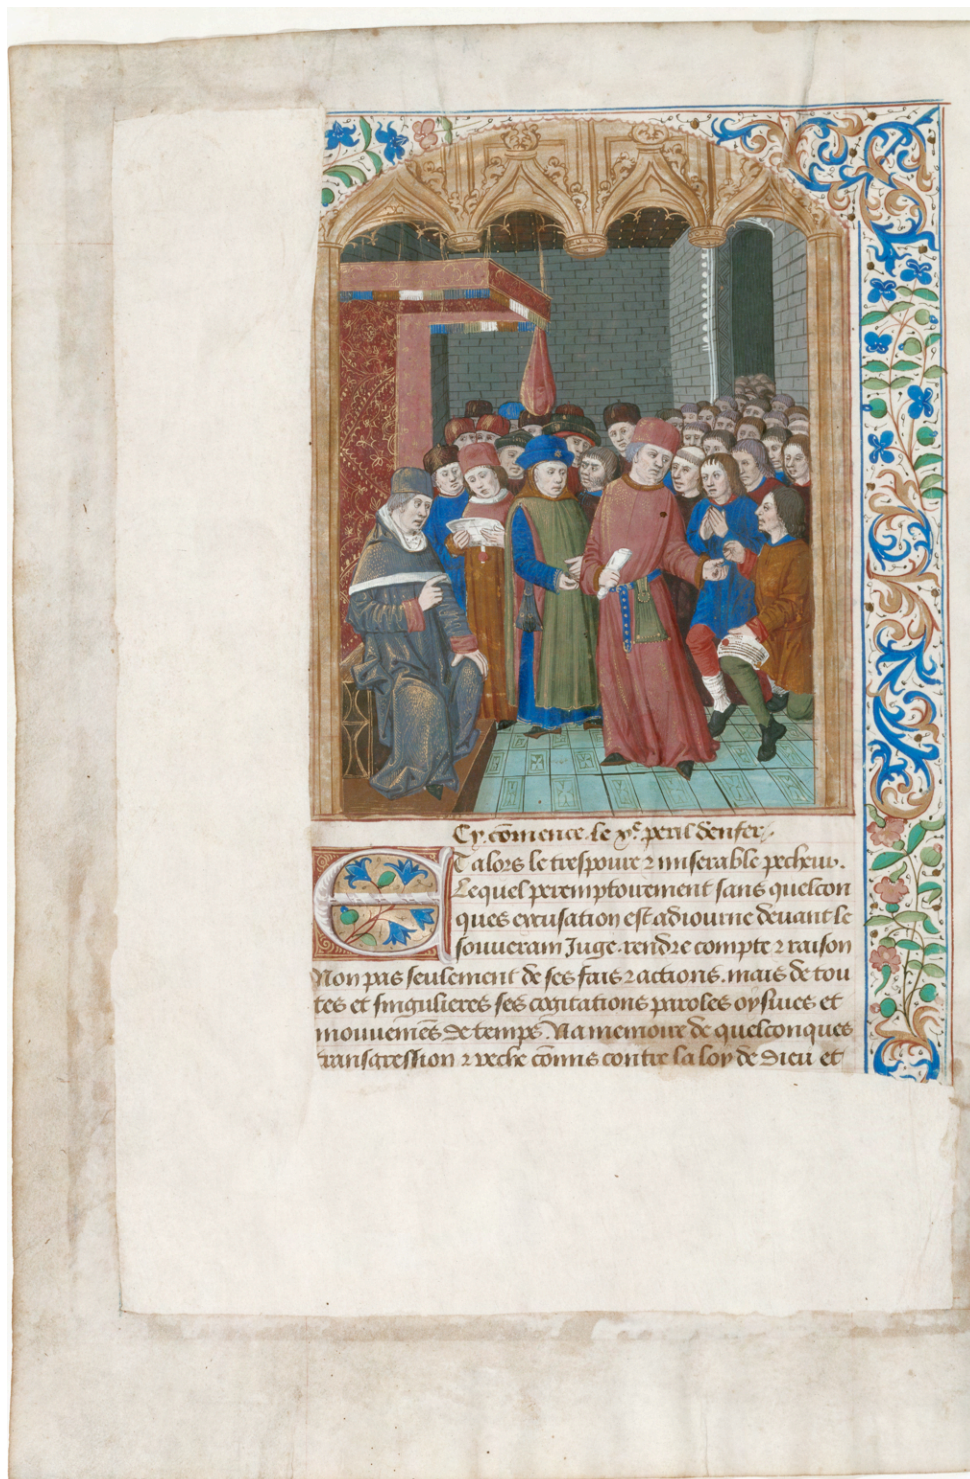 Cy co͞mence le xe. peril denfer.
ET alors le trespoure ⁊ miserable pecheur.
Lequel peremptoirement sans quelcon
ques excusation est adiourne deuant le
souuerain Juge. rendre compte ⁊ raison
Non pas seulement de ses fais ⁊ actions. mais de tou
tes et singulieres ses cogitations paroles oysiues et
mouueme͞s de temps. Na memoire de quelconques
transgression ⁊ peche co͞mis contre la loy de dieu et